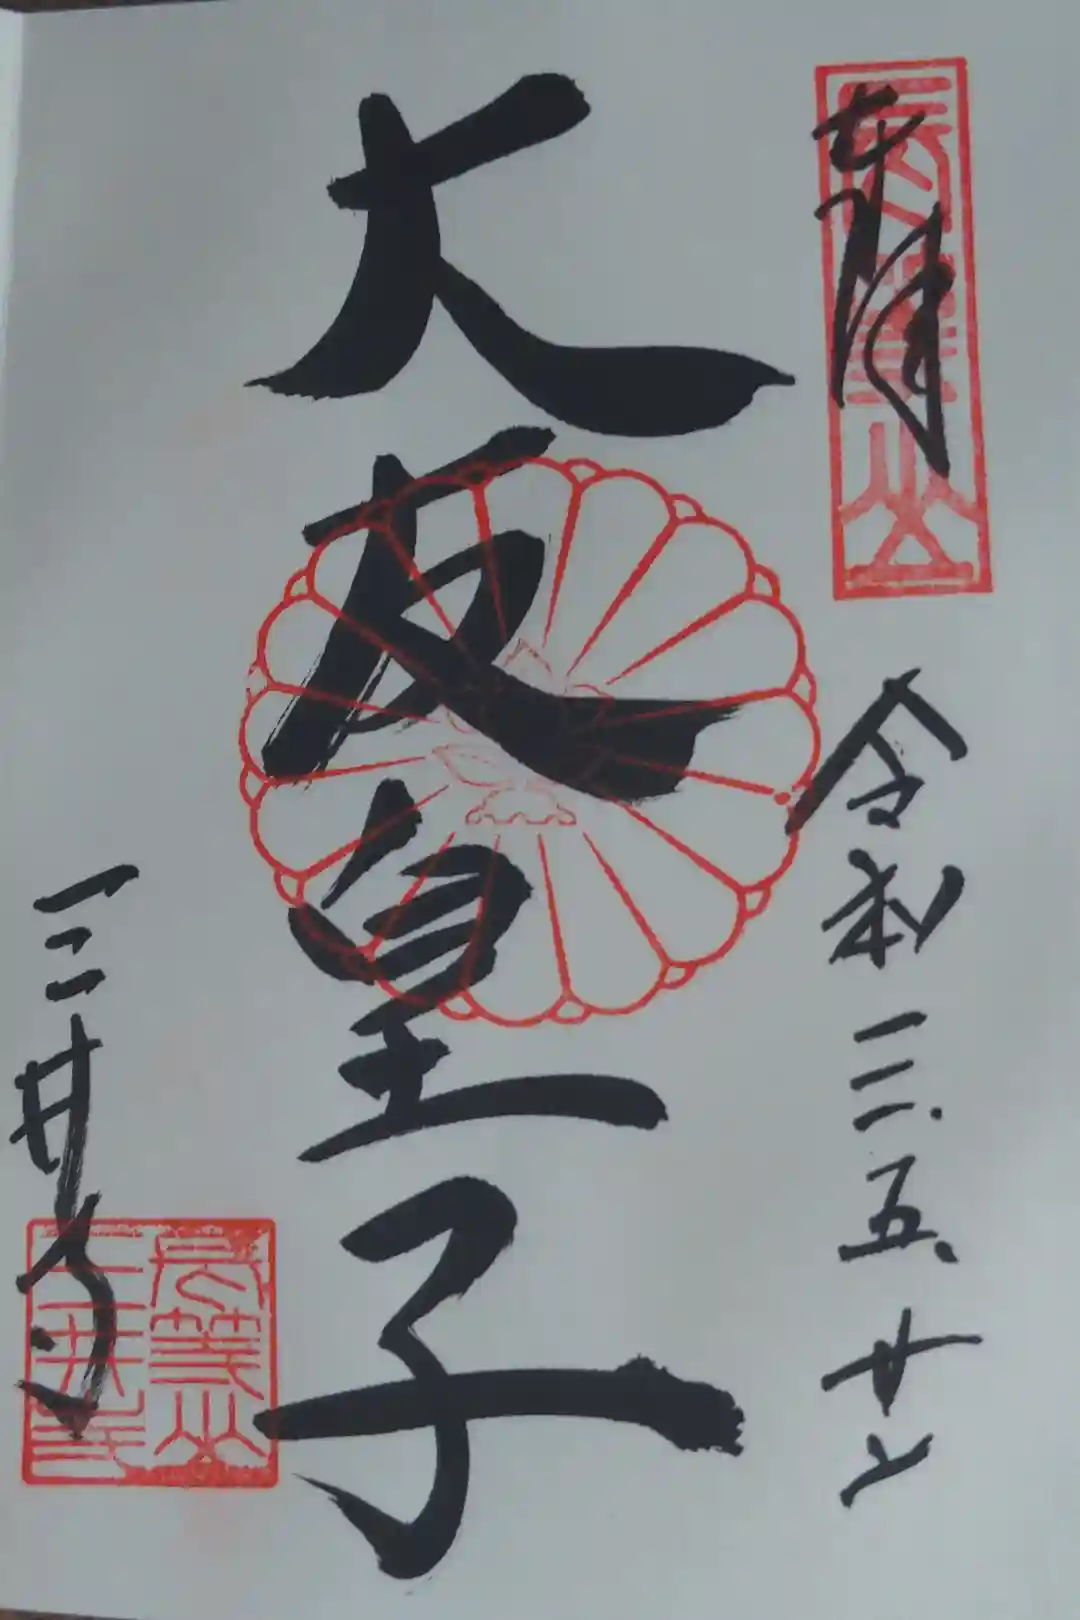 奉拝
長等山
令和三.五.廿
大友皇子
三井寺
長等山
三井寺